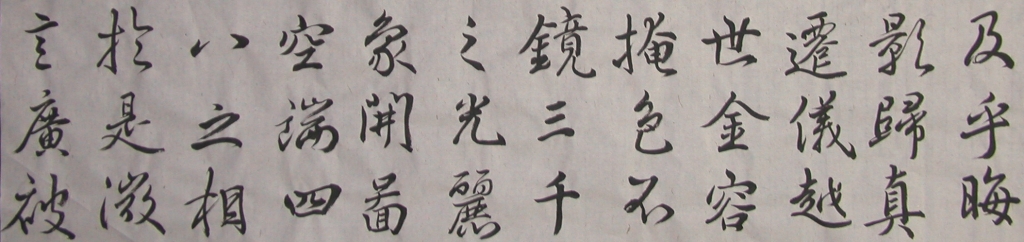 及乎晦
影歸真
遷儀越
世金容
掩色不
鏡三千
之光麗
象開圖
空端四
八之相
於是微
言廣被